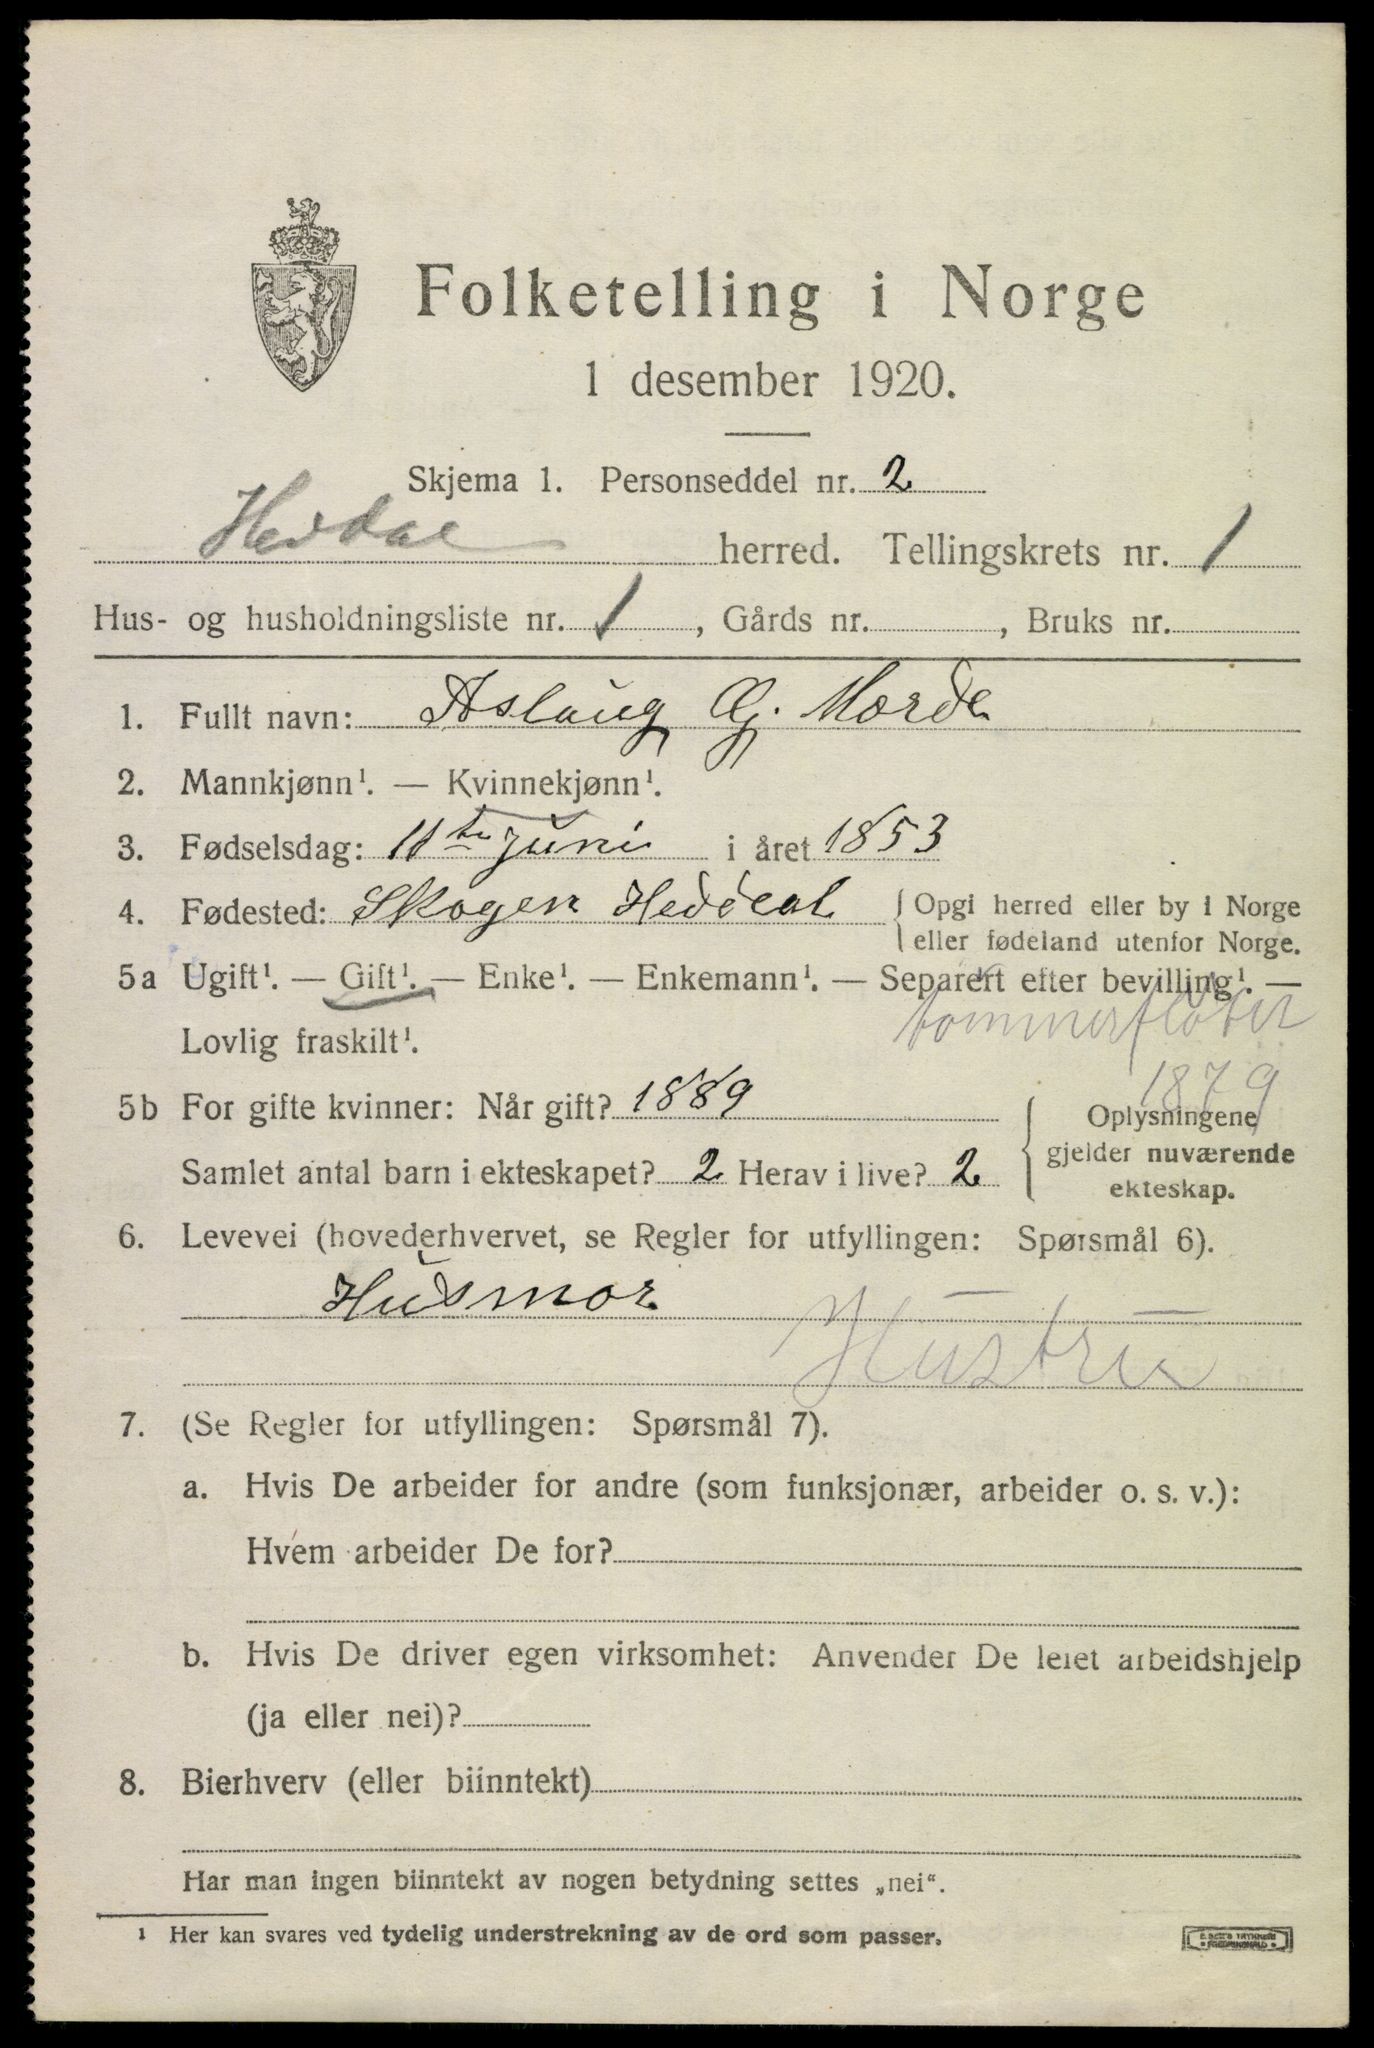 Folketelling i Norge
1 desember 1920.
Skjema 1. Personseddel nr. 2
Heddal herred. Tellingskrets nr. 1
Hus- og husholdningsliste nr. 1, Gårds nr. , Bruks nr.
1. Fullt navn: Aslaug G. Mærde
2. Mannkjønn¹. — Kvinnekjønn¹.
3. Fødselsdag: 11te juni i året 1853
4. Fødested: Skogen Heddal { Opgi herred eller by i Norge
eller fødeland utenfor Norge.
5a Ugift¹. — Gift¹. — Enke¹. — Enkemann¹. — Separert efter bevilling¹. —
tømmerfløter
Lovlig fraskilt¹.
1879
5b For gifte kvinner: Når gift? 1889
Samlet antal barn i ekteskapet? 2 Herav i live? 2
Oplysningene
gjelder nuværende
ekteskap.
6. Levevei (hovederhvervet, se Regler for utfyllingen: Spørsmål 6).
Husmor
Hustru
7. (Se Regler for utfyllingen: Spørsmål 7).
a. Hvis De arbeider for andre (som funksjonær, arbeider o. s. v.):
Hvem arbeider De for?
b. Hvis De driver egen virksomhet: Anvender De leiet arbeidshjelp
(ja eller nei)?
8. Bierhverv (eller biinntekt)
Har man ingen biinntekt av nogen betydning settes „nei“.
¹ Her kan svares ved tydelig understrekning av de ord som passer.